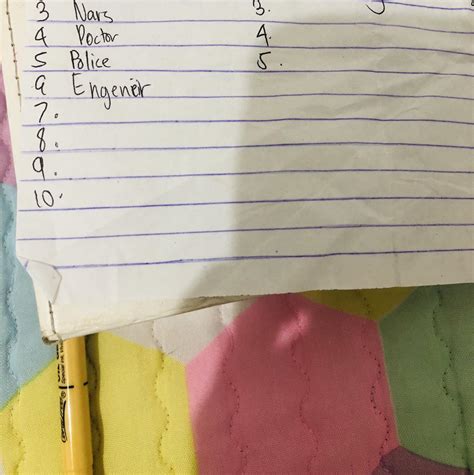 3 Nars 3.
4 Doctor 4.
5 Police 5.
6 Engenier
7.
8.
9.
10.